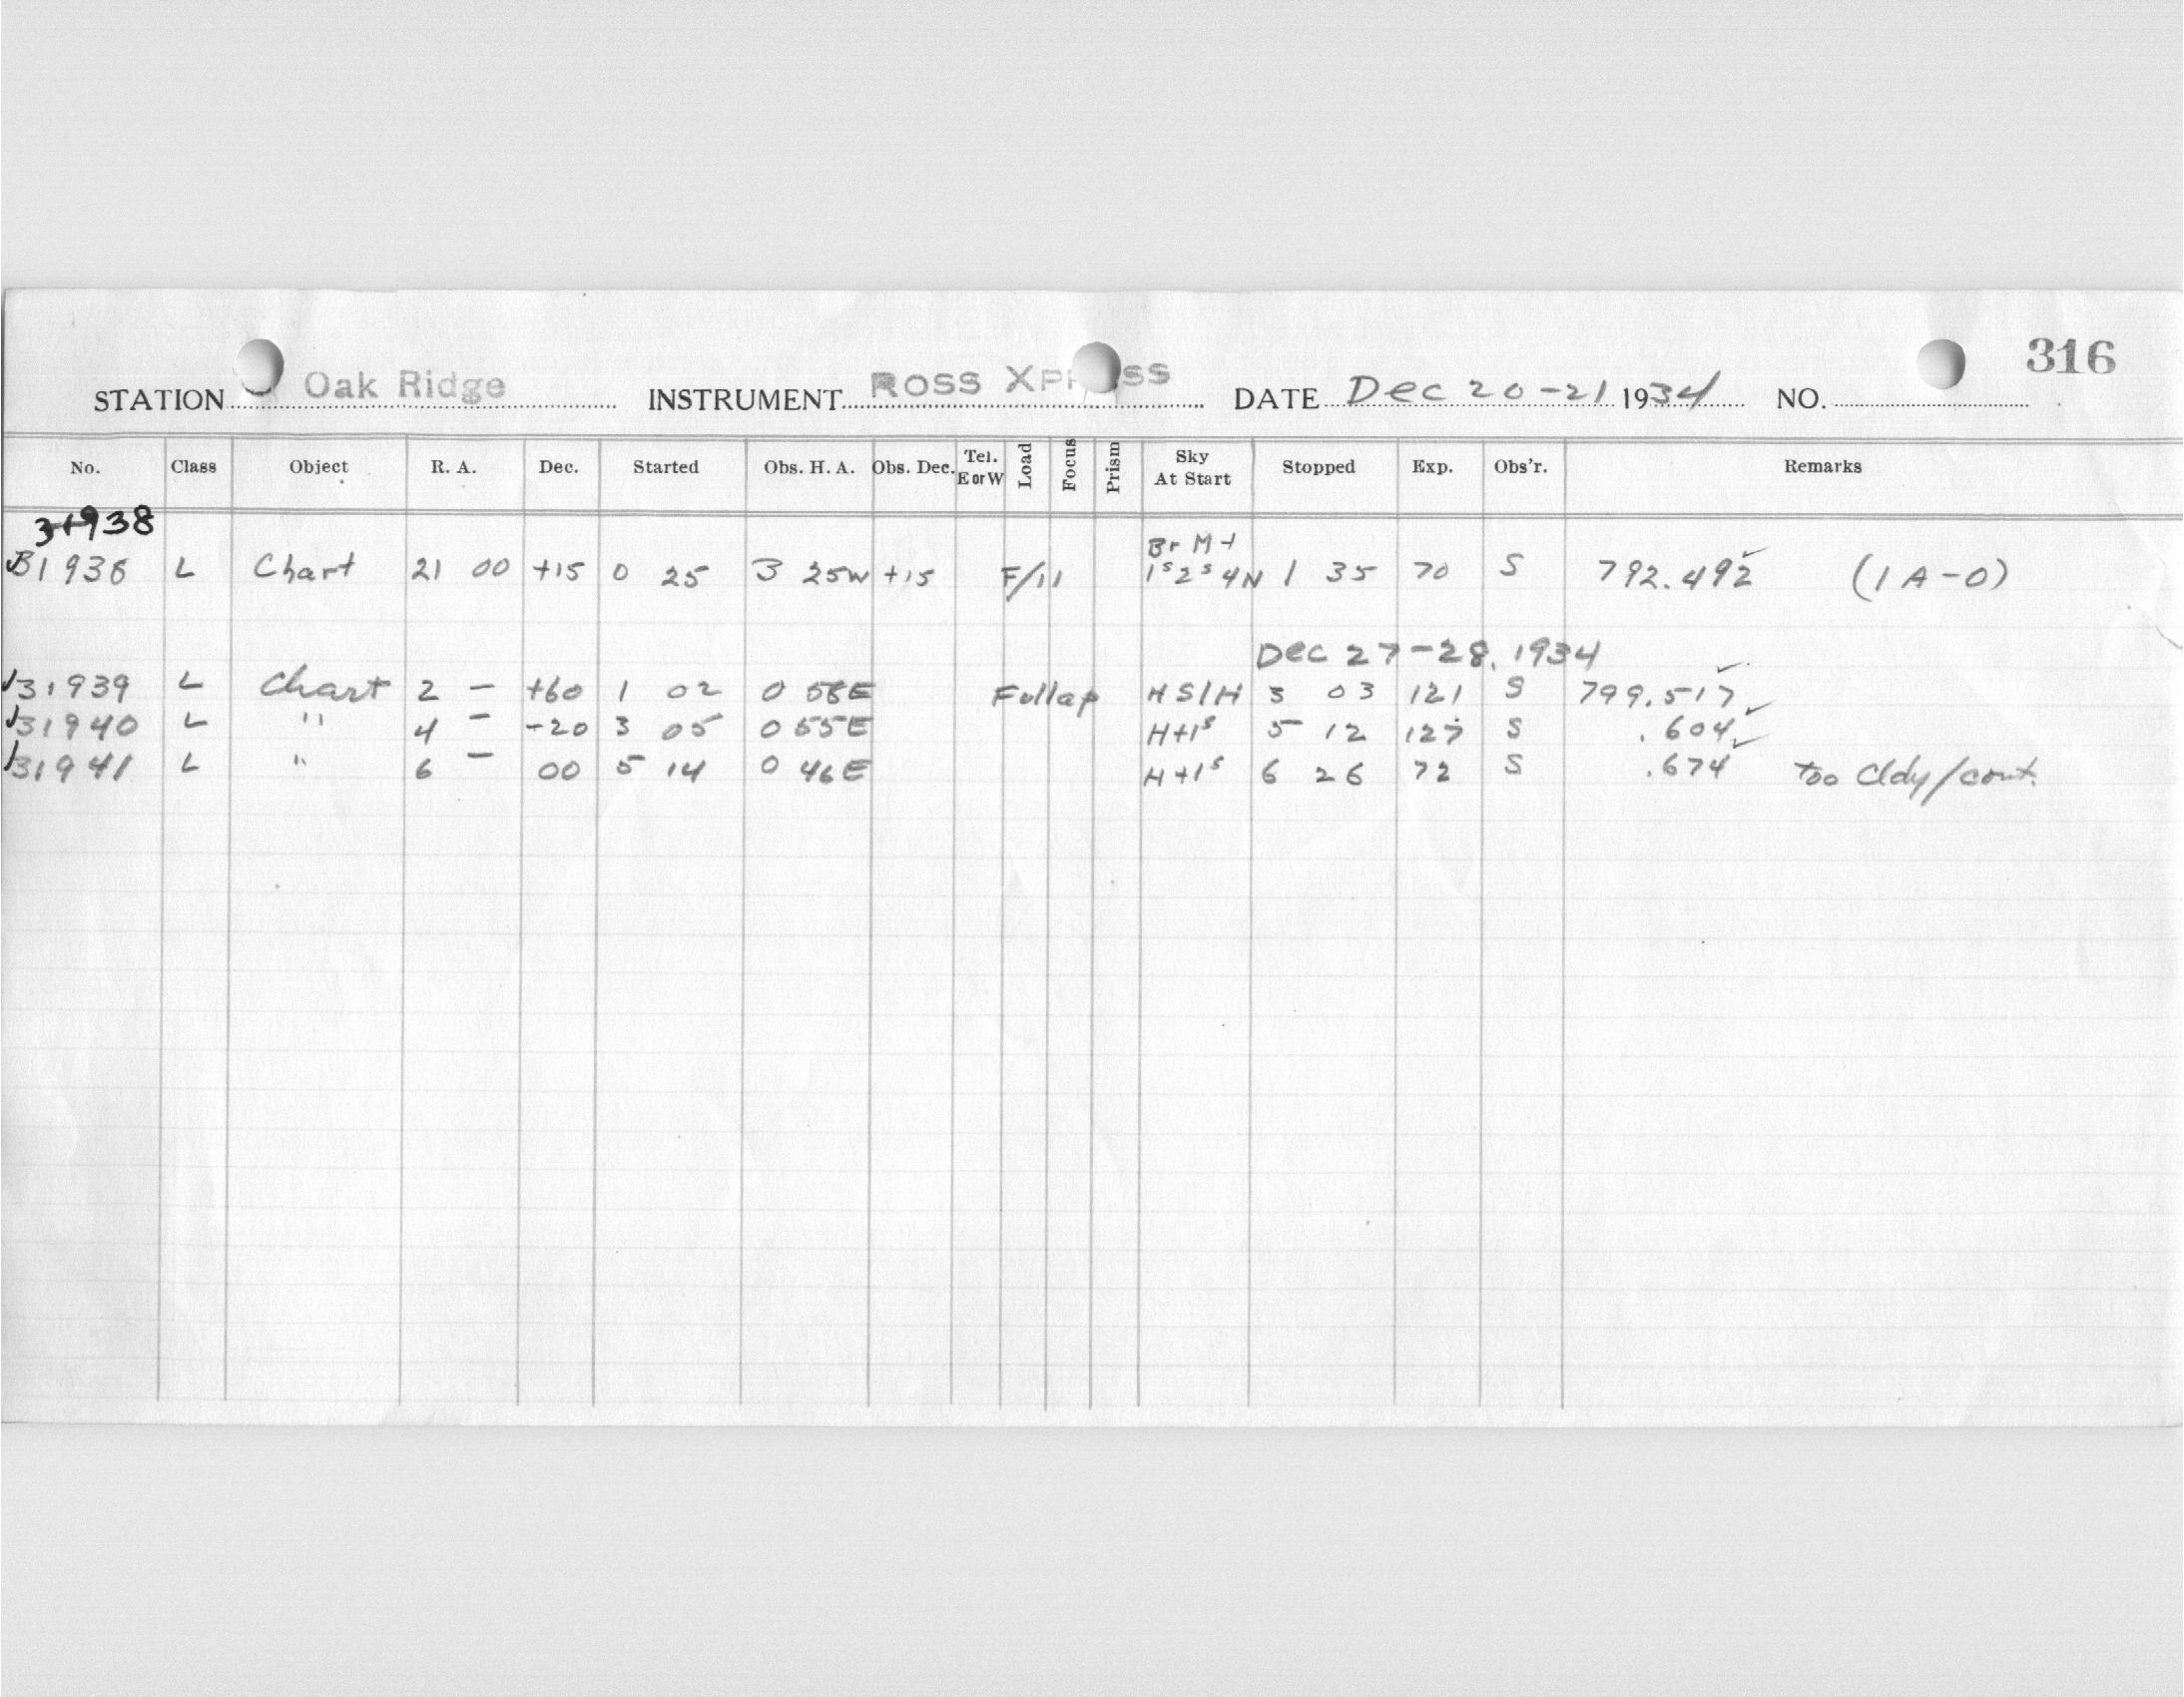 316
STATION Oak Ridge INSTRUMENT ROSS XPRESS DATE Dec 20-21 1934 NO.
No. Class Object R. A. Dec. Started Obs. H. A. Obs. Dec. Tel. E or W Load Focus Prism Sky At Start Stopped Exp. Obs'r. Remarks
31938
Br M
31938 L Chart 21 00 +15 0 25 3 25W +15 F/11 1s2s4N 1 35 70 S 792.492 (1A-0)
Dec 27-28, 1934
31939 L Chart 2 - +60 1 02 0 58E Fullap HS/H 3 03 121 S 799.517
31940 L " 4 - -20 3 05 0 55E H+1s 5 12 127 S .604
31941 L " 6 - 00 5 14 0 46E H+1s 6 26 72 S .674 too Cldy/cont.